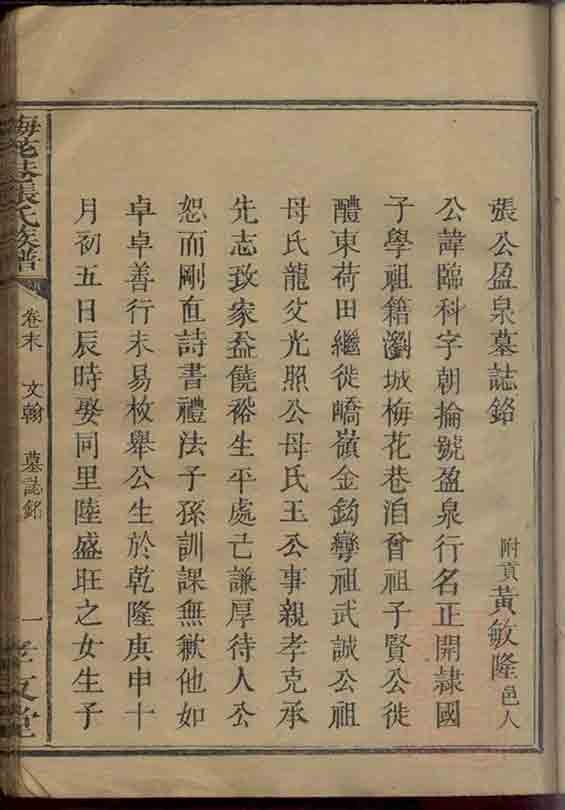 張公盈泉墓誌銘 附貢黃敏隆邑人
公諱臨科字朝掄號盈泉行名正開隷國
子學祖籍瀏城梅花巷洎曾祖子賢公徙
醴東荷田繼徙嶠嶺金鈎灣祖武誠公祖
母氏龍父光照公母氏王公事親孝克承
先志致家益饒裕生平處己謙厚待人公
恕而剛直詩書禮法子孫訓課無歉他如
卓卓善行未易枚舉公生於乾隆庚申十
月初五日辰時娶同里陸盛旺之女生子
梅花巷張氏族譜 卷末 文翰 墓誌銘 一 孝友堂